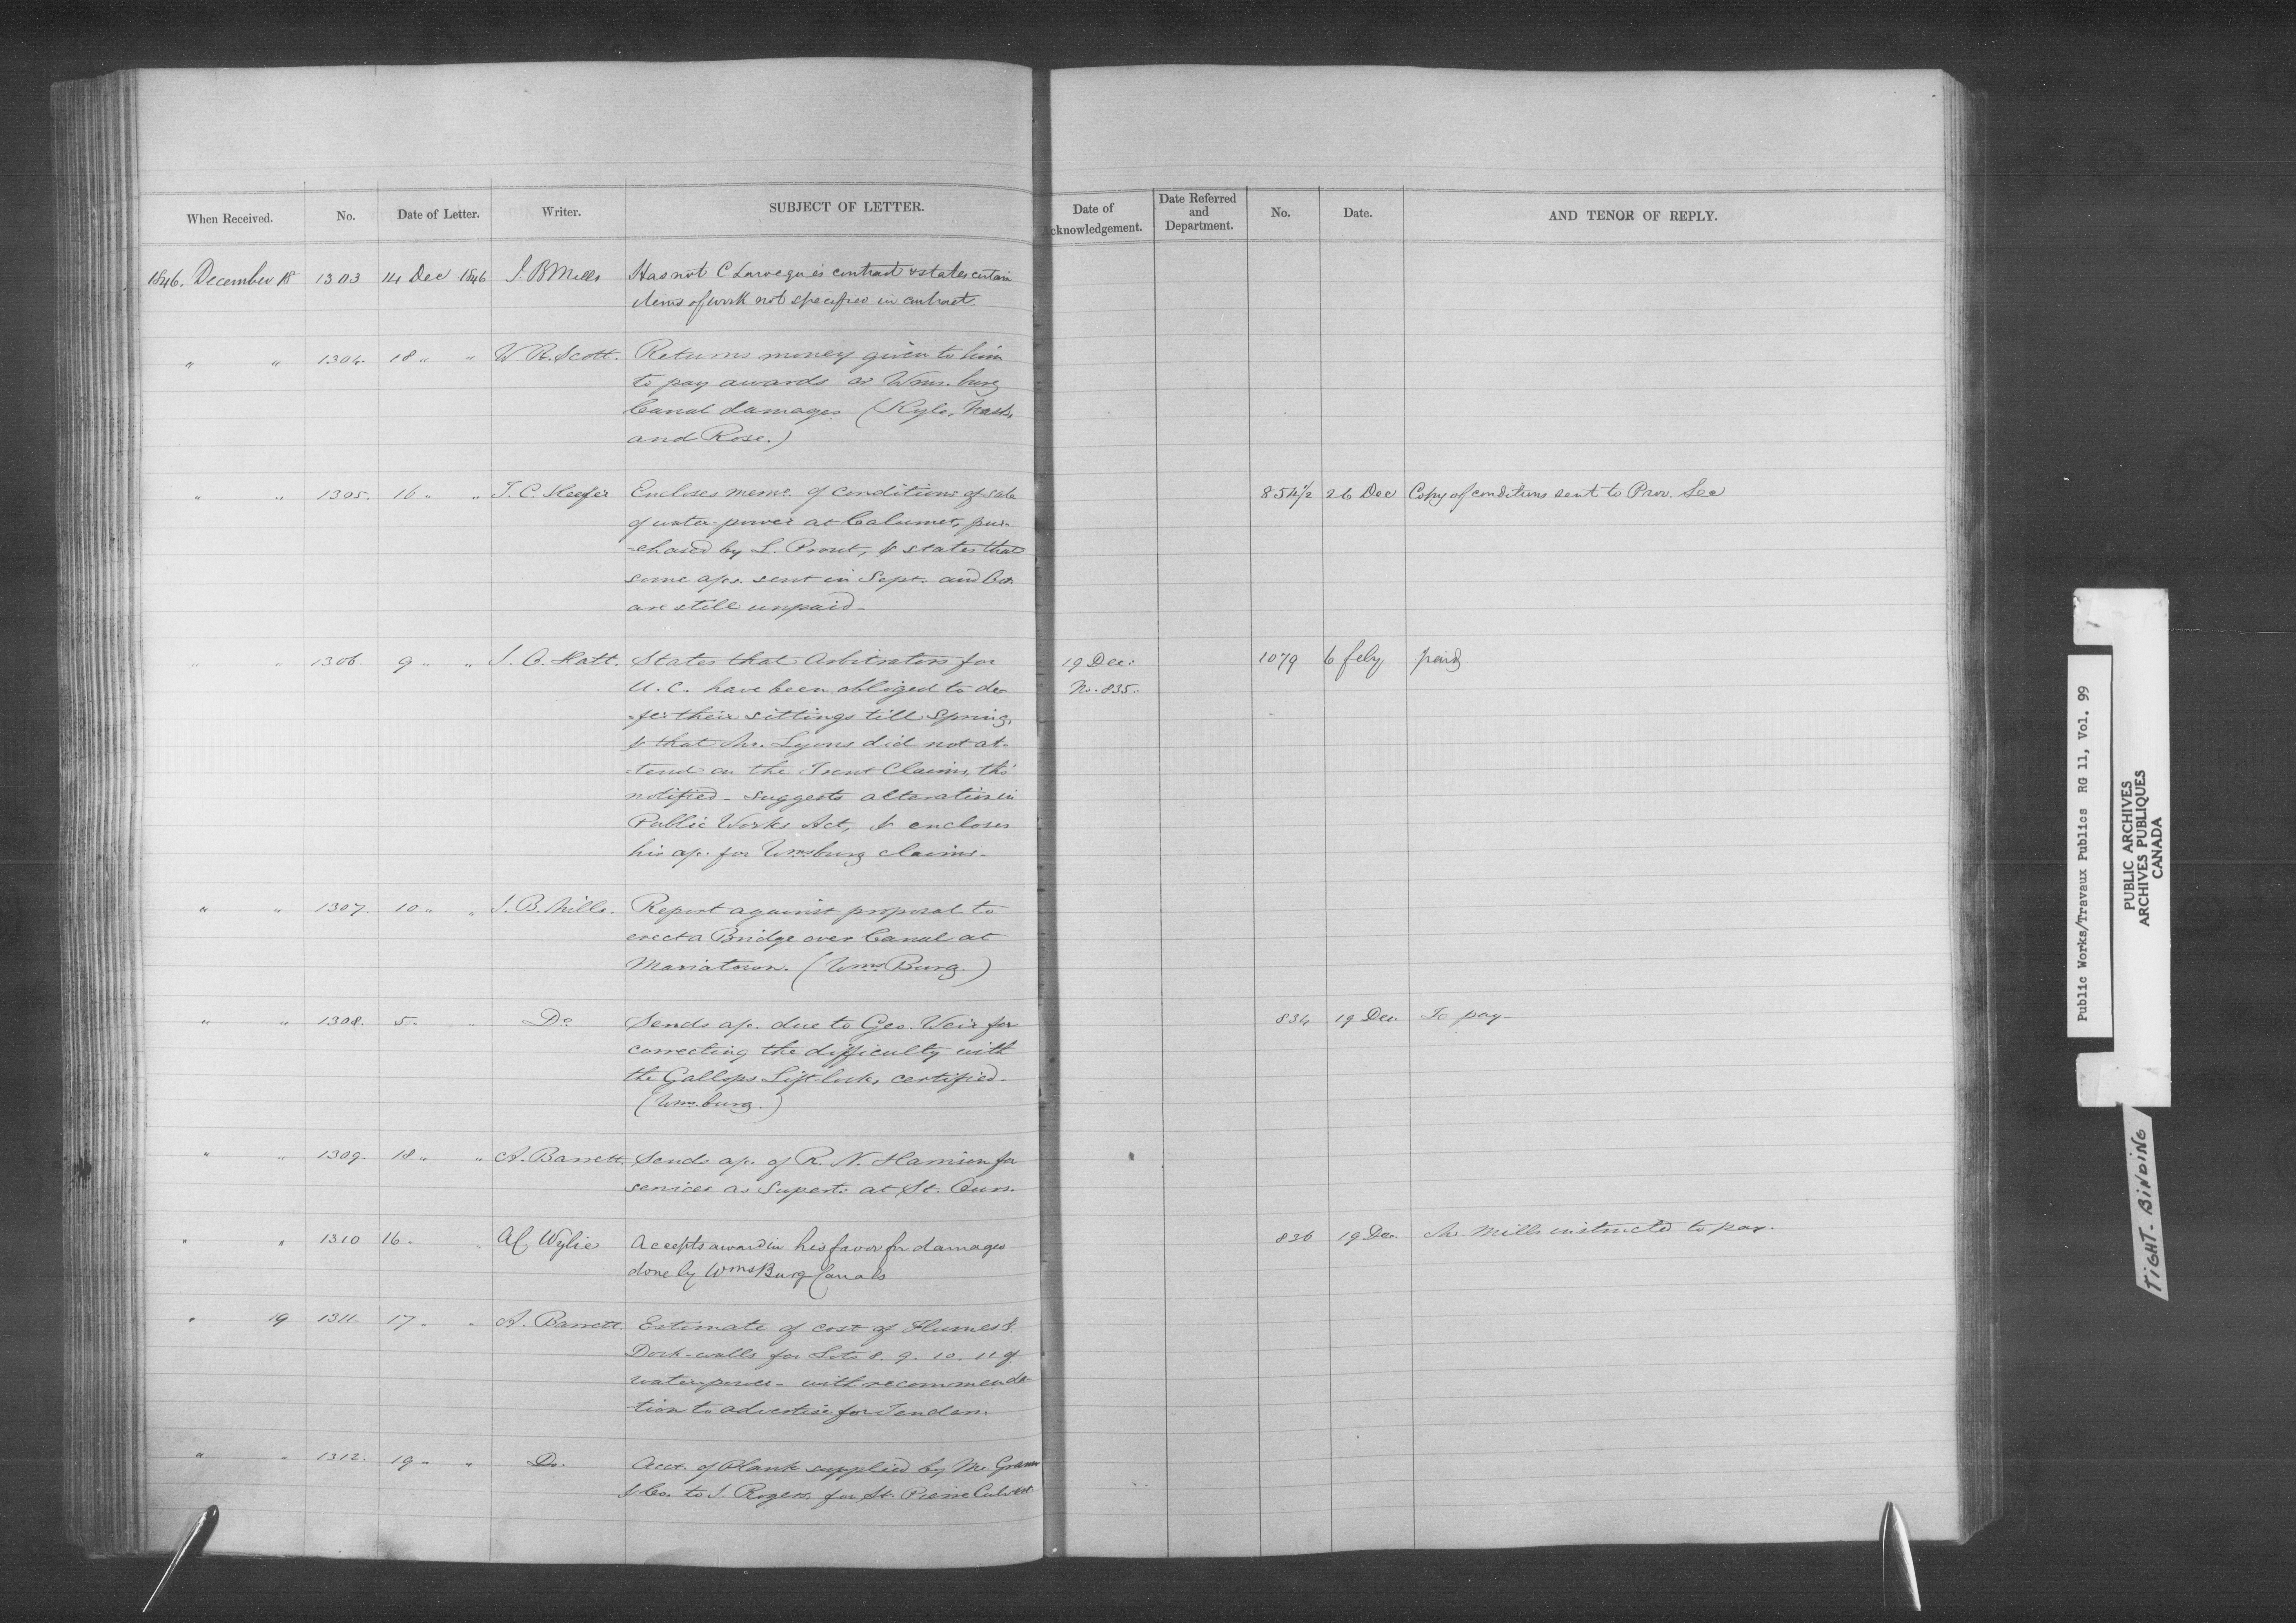 When Received. No. Date of Letter. Writer. SUBJECT OF LETTER. Date of Acknowledgement. Date Referred and Department. No. Date. AND TENOR OF REPLY.
1846. December 18 1303 14 Dec 1846 J B Mills Has not C Larocque's contract & states certain
items of work not specified in contract.
" " 1304. 18 " " W R. Scott. Returns money given to him
to pay awards as Wms. burg
Canal damages (Kyle, Nash,
and Rose.)
" " 1305. 16 " " T. C. Keefer Encloses memo. of conditions of sale 854½ 26 Dec Copy of conditions sent to Prov. Sec
of water-power at Calumet, pur-
-chased by L. Prout, & states that
some a/cs. sent in Sept. and Oct.
are still unpaid -
" " 1306. 9 " " J. O. Hatt. States that Arbitrators for 19 Dec. 1079 6 feby paid
U. C. have been obliged to de- No. 835.
-fer their sittings till Spring,
& that Mr. Lyons did not at-
-tend on the Trent Claims, tho'
notified - suggests alteration in
Public Works Act, & encloses
his a/c. for Wmsburg claims -
" " 1307. 10 " " J. B. Mills. Report against proposal to
erect a Bridge over Canal at
Mariatown. (Wms Burg.)
" " 1308. 5 " " Do Sends a/c. due to Geo. Weir for 834 19 Dec. To pay -
correcting the difficulty with
the Gallops Lift-lock, certified -
(Wms. burg.)
" " 1309. 18 " " A. Barrett. Sends a/c. of R. N. Harrison for
services as Supert. at St. Ours.
" " 1310 16 " " Al Wylie Accepts award in his favor for damages 836 19 Dec. Mr. Mills instructed to pay.
done by Wms Burg Canals
" 19 1311. 17 " " A. Barrett. Estimate of cost of Flumes &
Dock-walls for Lots 8. 9. 10. 11 of
water-power - with recommenda-
-tion to advertise for Tenders.
" " 1312. 19 " " Do. Acct. of Plank supplied by
& Co. to J. Rogers, for St. Pierre Culvert
Public Works/Travaux Publics RG 11, Vol. 99
PUBLIC ARCHIVES
ARCHIVES PUBLIQUES
CANADA
TIGHT BINDING